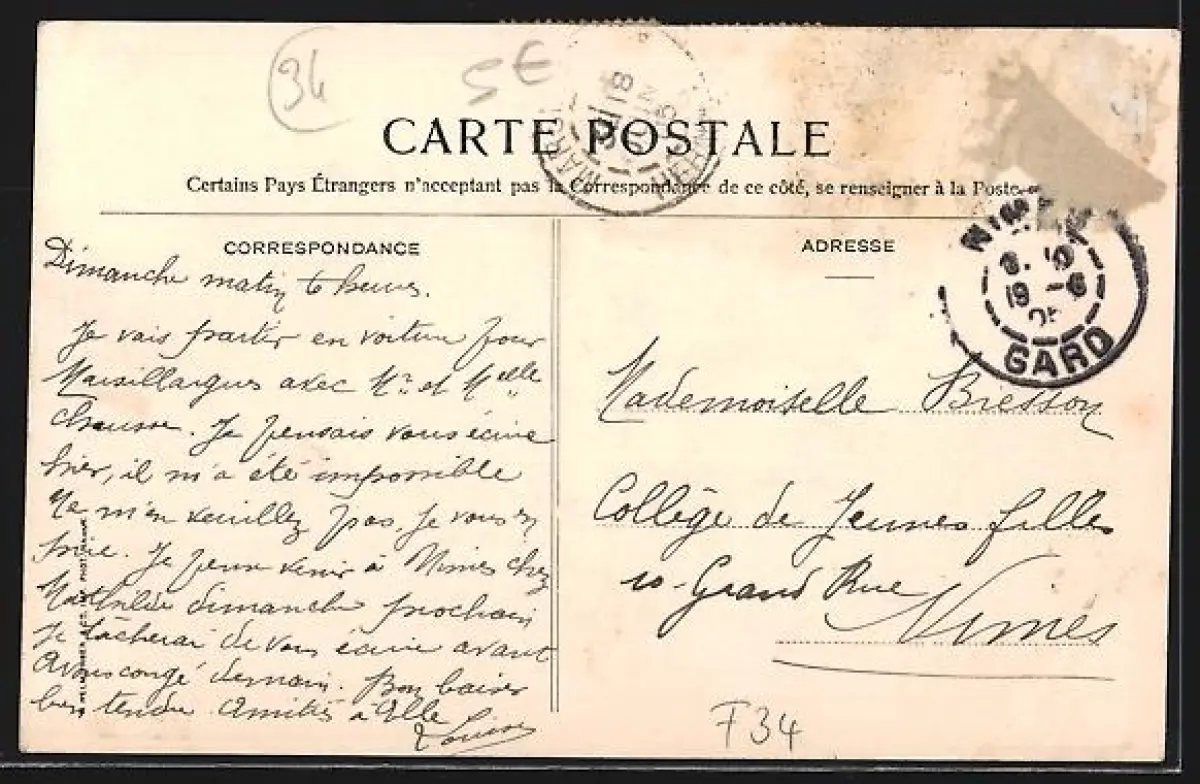 34
5€
CARTE POSTALE
Certains Pays Étrangers n'acceptent pas la Correspondance de ce côté, se renseigner à la Poste
CORRESPONDANCE
Dimanche matin 6 heures.
Je vais partir en voiture pour
Marsillargues avec Mr et Melle
Chausse. Je pensais vous écrire
hier, il m'a été impossible
Ne m'en veuillez pas, je vous en
prie. Je peux venir à Nimes chez
Mathilde dimanche prochain
Je tâcherai de vous écrire avant
Avons congé demain. Bon baiser
bien tendre Amitiés à Elle
Louise
ADRESSE
NIMES
19 -6
05
GARD
Mademoiselle Bresson
Collège de Jeunes filles
10 - Grand Rue
Nimes
F34